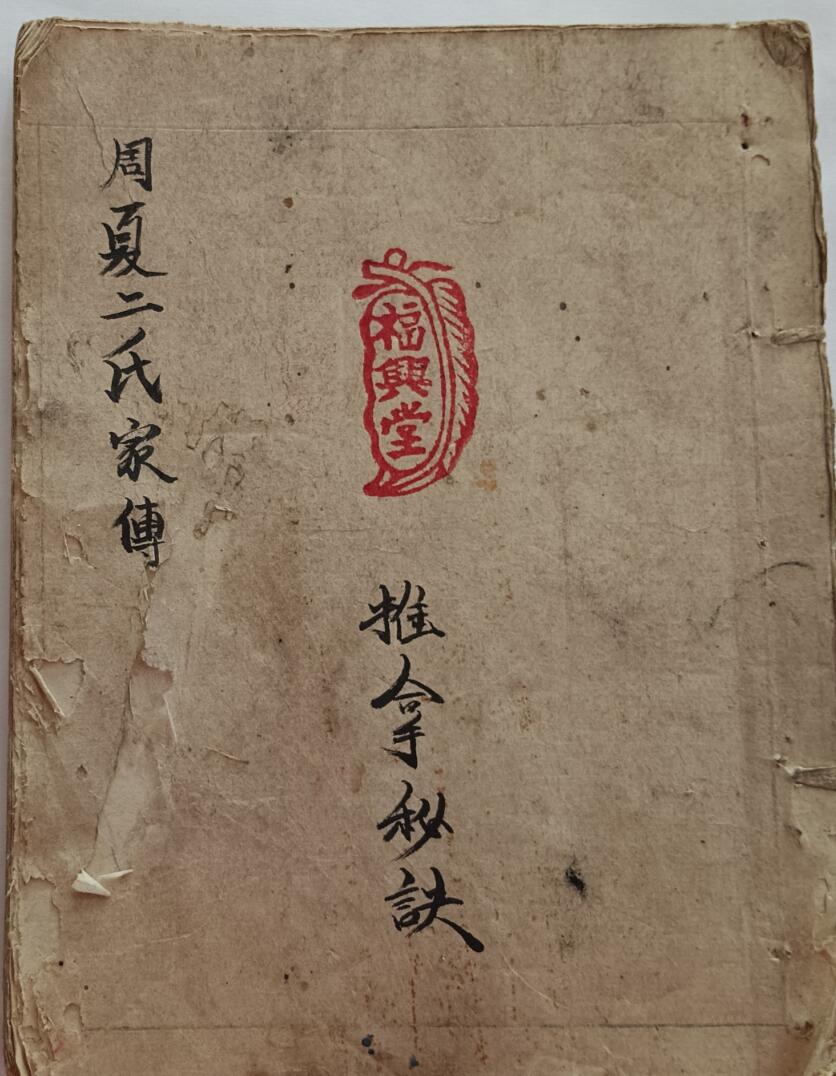 福興堂
推拿秘訣
周夏二氏家傳